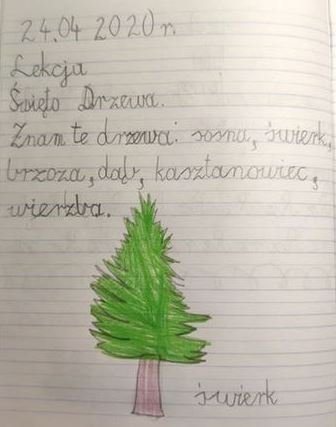 24.04 2020 r.
Lekcja
Święto Drzewa.
Znam te drzewa: sosna, świerk,
brzoza, dąb, kasztanowiec,
wierzba.
świerk